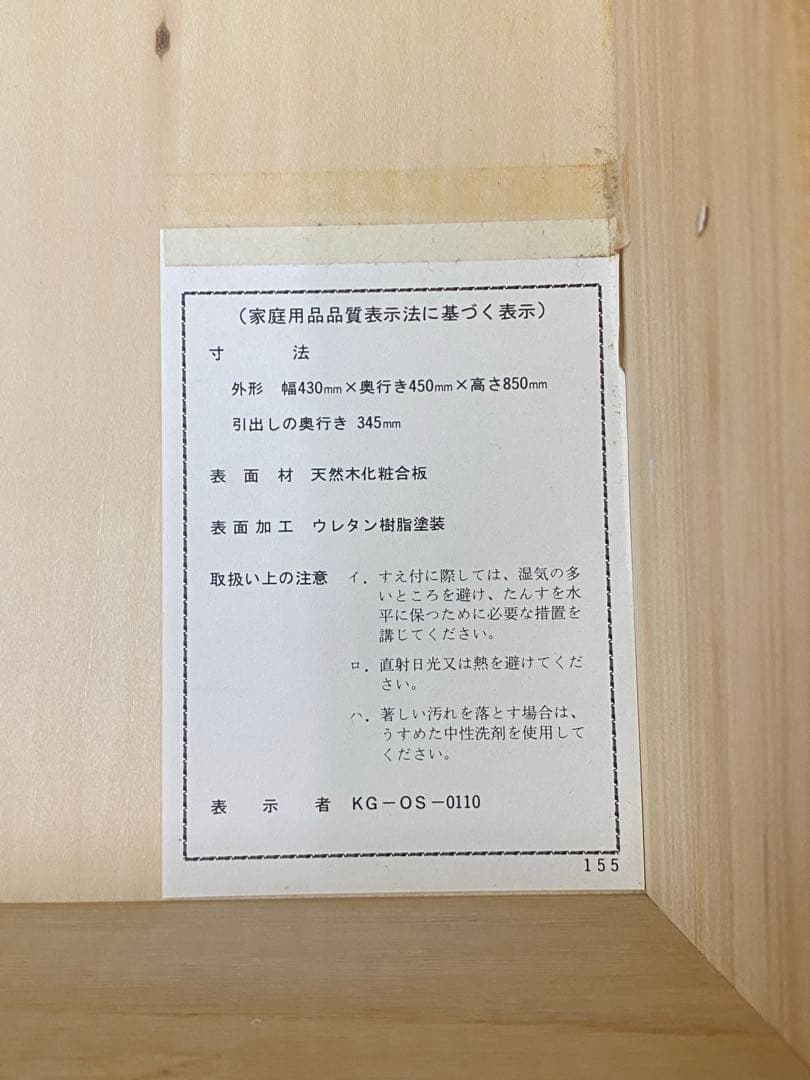 （家庭用品品質表示法に基づく表示）
寸　法
外形　幅430mm×奥行き450mm×高さ850mm
引出しの奥行き 345mm
表面材　天然木化粧合板
表面加工　ウレタン樹脂塗装
取扱い上の注意　イ．すえ付に際しては、湿気の多
いところを避け、たんすを水
平に保つために必要な措置を
講じてください。
ロ．直射日光又は熱を避けてくだ
さい。
ハ．著しい汚れを落とす場合は、
うすめた中性洗剤を使用して
ください。
表示者　KG－OS－0110
155